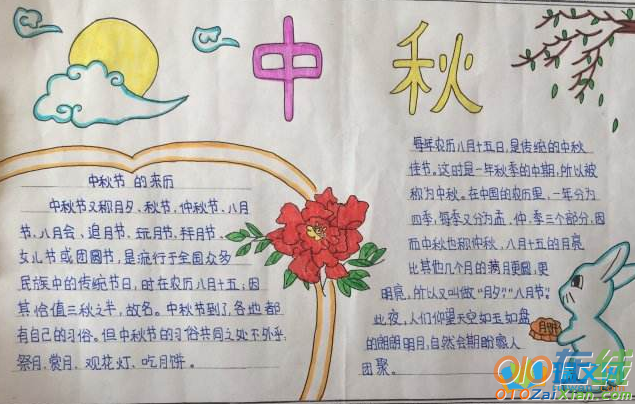 中秋
中秋节 的来历
中秋节又称月夕、秋节、仲秋节、八月
节、八月会、追月节、玩月节、拜月节、
女儿节或团圆节,是流行于全国众多
民族中的传统节日,时在农历八月十五;因
其恰值三秋之半,故名。中秋节到了,各地都
有自己的习俗。但中秋节的习俗共同之处不外乎
祭月、赏月、观花灯、吃月饼。
每年农历八月十五日,是传统的中秋
佳节。这时是一年秋季的中期,所以被
称为中秋。在中国的农历里,一年分为
四季,每季又分为孟、仲、季三个部分,因
而中秋也称仲秋。八月十五的月亮
比其他几个月的满月更圆,更
明亮,所以又叫做“月夕”“八月节”。
此夜,人们仰望天空如玉如盘
的朗朗明月,自然会期盼家人
团聚。
月饼
010在线
010ZaiXian.com